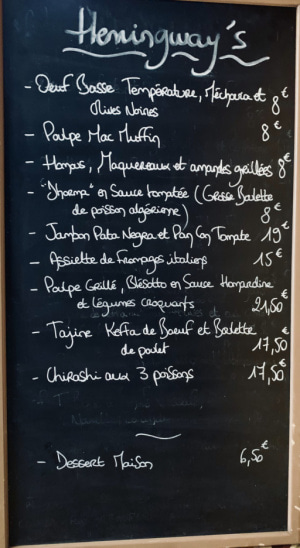 Hemingway's
- Oeuf Basse Température, Méchouia et
Olives Noires 8€
- Poulpe Mac Muffin 8€
- Homos, Maquereaux et amandes grillées 8€
- en Sauce tomatée (Grosse Balette
de poisson algérienne) 8€
- Jambon Pata Negra et Pan Con Tomate 19€
- Assiette de Fromages italiens 15€
- Poulpe Grillé, Blésotto en Sauce
et Légumes Croquants 21,50€
- Tajine Kefta de Boeuf et Balette
de poulet 17,50€
- Chirashi aux 3 poissons 17,50€
- Dessert Maison 6,50€